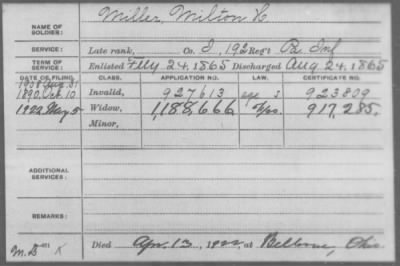 Miller, Milton C
NAME OF SOLDIER:
SERVICE: Late rank, Co. I, 192 Reg't O. Inf
TERM OF SERVICE: Enlisted Feby 24, 1865 Discharged Aug 24, 1865
DATE OF FILING. CLASS. APPLICATION NO. LAW. CERTIFICATE NO.
1908 Aug 31
1890, Oct. 10 Invalid, 927613 age S 923809
1922 May 5 Widow, 1,188,666 917,285.
Minor,
ADDITIONAL SERVICES:
REMARKS:
Died Apr. 13, 1922, at Bellevue, Ohio